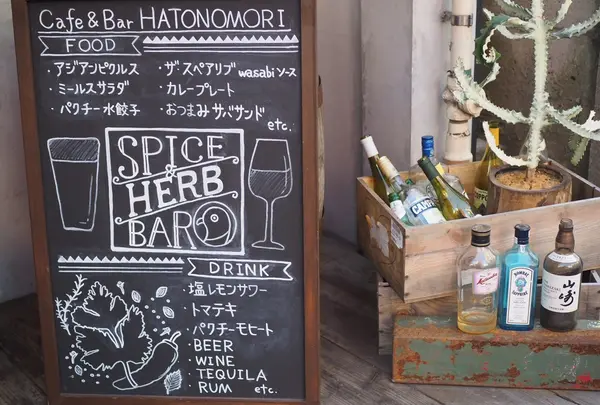 Cafe & Bar HATONOMORI
FOOD
・アジアンピクルス
・ミールスサラダ
・パクチー水餃子
・ザ・スペアリブ wasabiソース
・カレープレート
・おつまみサバサンド
etc.
SPICE
&
HERB
BAR
DRINK
・塩レモンサワー
・トマテキ
・パクチーモヒート
・BEER
・WINE
・TEQUILA
・RUM etc.
CAMPA
BOMBAY
SAPPHIRE
山崎